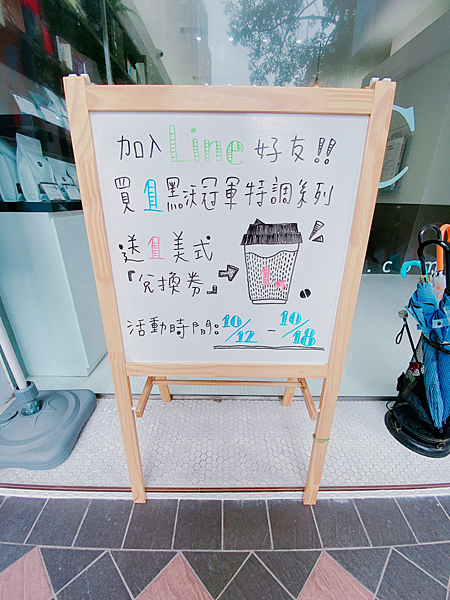 加入Line好友!!
買1黑沃冠軍特調系列
送1美式
『兌換券』→
活動時間: 10/12 - 10/18